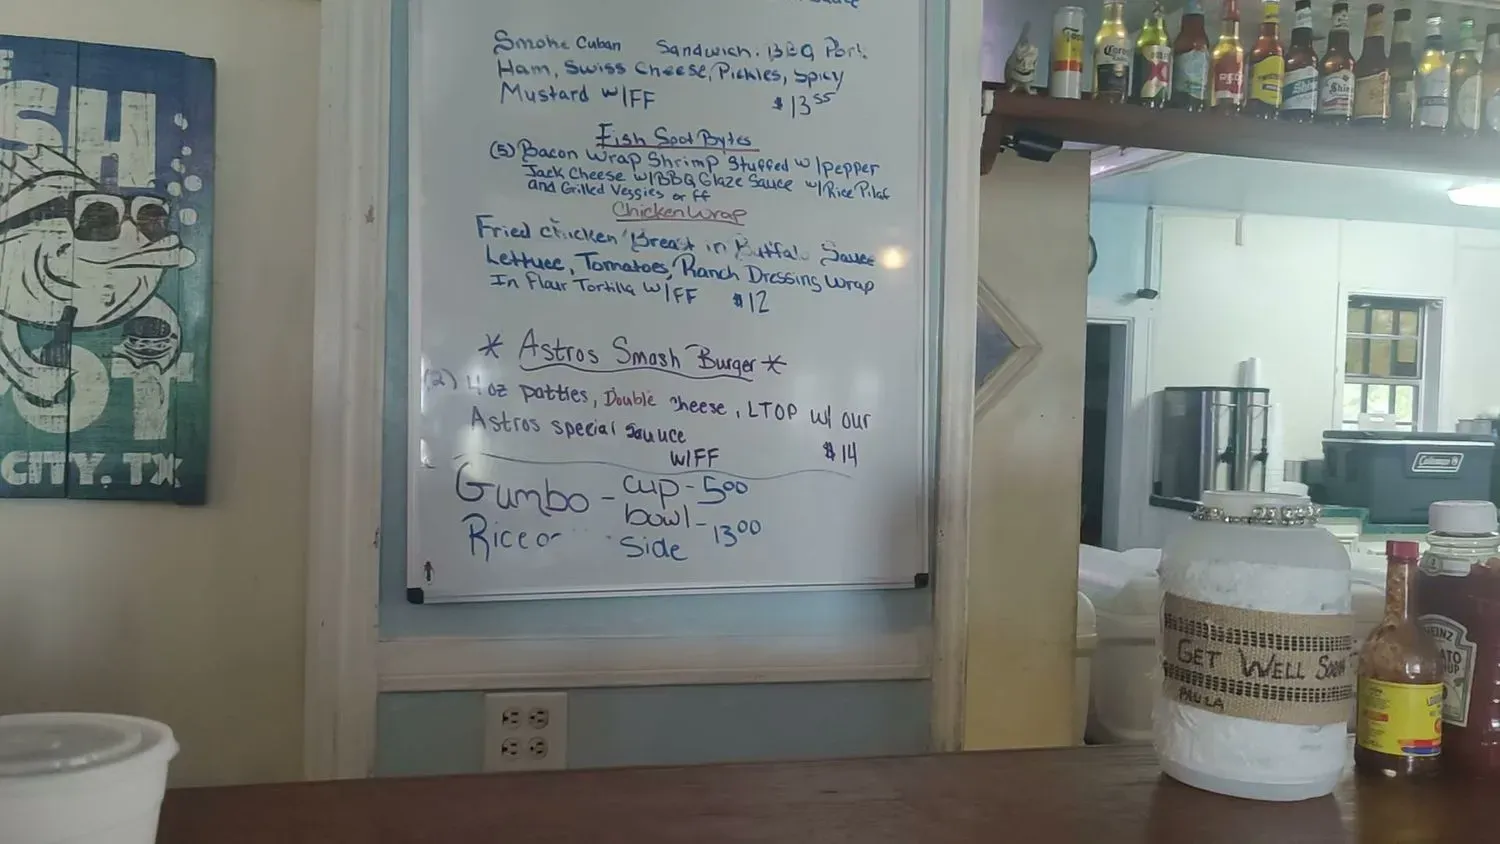 Sauce
Smoke Cuban Sandwich. BBQ Pork
Ham, Swiss Cheese, Pickles, Spicy
Mustard w/FF $13 55
Fish Spot Bytes
(5) Bacon Wrap Shrimp Stuffed w/pepper
Jack Cheese w/BBQ Glaze Sauce w/Rice Pilaf
and Grilled Veggies or ff
Chicken Wrap
Fried chicken Breast in Buffalo Sauce
Lettuce, Tomatoes, Ranch Dressing Wrap
In Flour Tortilla w/FF $12
* Astros Smash Burger *
(2) 4 oz patties, Double cheese, LTOP w/ our
Astros special sauuce
w/FF $14
Gumbo - cup - 5 00
bowl - 13 00
Rice or side
SH
OT
CITY, TX
Coleman
GET WELL SOON
PAULA
HEINZ